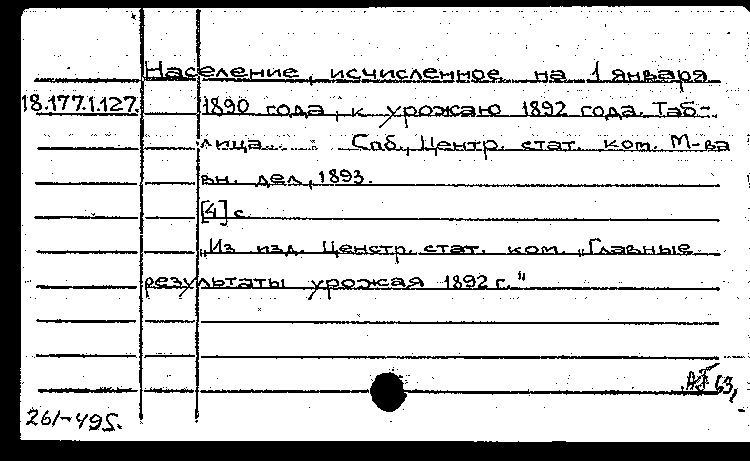 Население, исчисленное на 1 января
18.177.1.127. 1890 года, к урожаю 1892 года. Таб-
лица. Спб., Центр. стат. ком. М-ва
вн. дел, 1893.
[4] с.
„Из изд. Ценстр. стат. ком. „Главные
результаты урожая 1892 г."
63,
261-495.